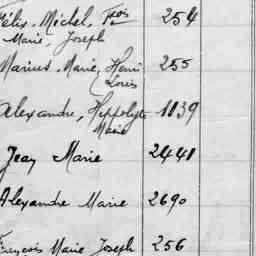 Félix, Michel, Fçois 254
Marie, Joseph
Marius, Marie, Henri 255
Louis
Alexandre, Hippolyte 1139
Marie
Jean Marie 2441
Alexandre Marie 2690
François Marie Joseph 256